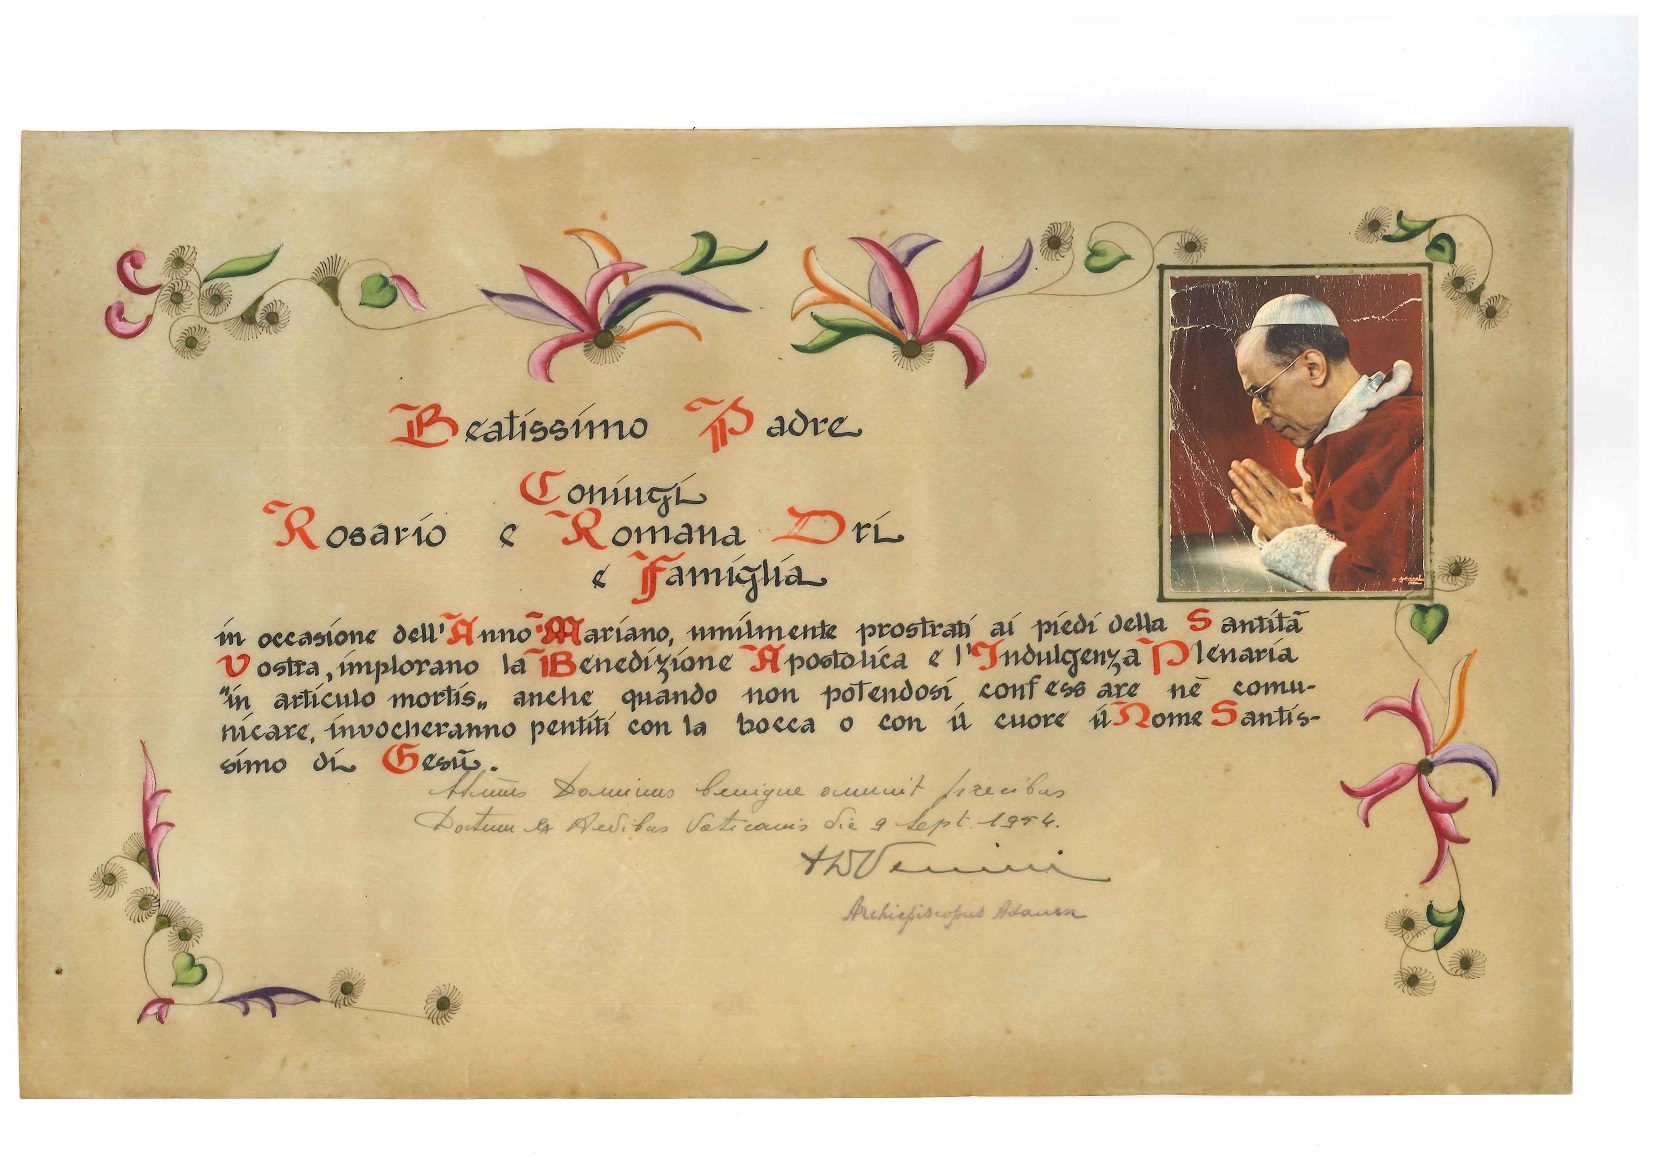 Beatissimo Padre
Coniugi
Rosario e Romana Dri
e Famiglia
in occasione dell'Anno Mariano, umilmente prostrati ai piedi della Santità
Vostra, implorano la Benedizione Apostolica e l'Indulgenza Plenaria
"in articulo mortis„ anche quando non potendosi confessare nè comu-
nicare, invocheranno pentiti con la bocca o con il cuore il Nome Santis-
simo di Gesù.
Dominus benigne annuit precibus
Datum ex Aedibus Vaticanis die 9 Sept. 1954.
Venini
Archiepiscopus Adanen